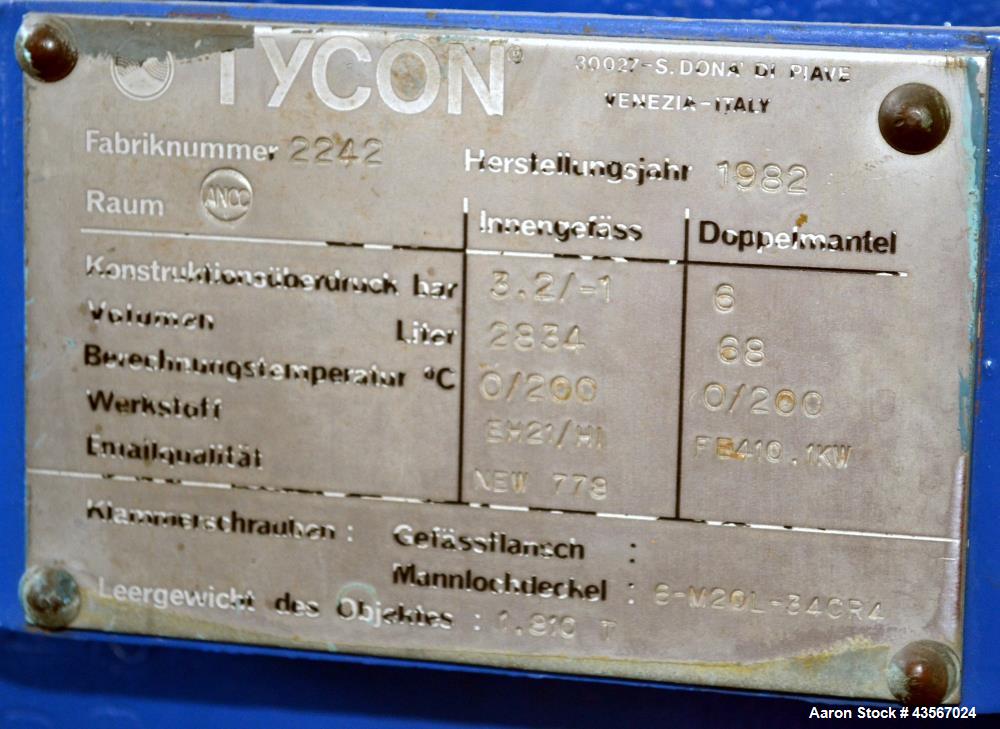 TYCON®
30027-S. DONA' DI PIAVE
VENEZIA-ITALY
Fabriknummer 2242 Herstellungsjahr 1982
Raum ANCC Innengefäss Doppelmantel
Konstruktionsüberdruck bar 3.2/-1 6
Volumen Liter 2834 68
Berechnungstemperatur °C 0/200 0/200
Werkstoff EH21/HI FE410.1KW
Emailqualität NEW 778
Klammerschrauben : Gefässflansch :
Mannlochdeckel : 8-M20L-340R4
Leergewicht des Objektes : 1.910 T
Aaron Stock # 43567024